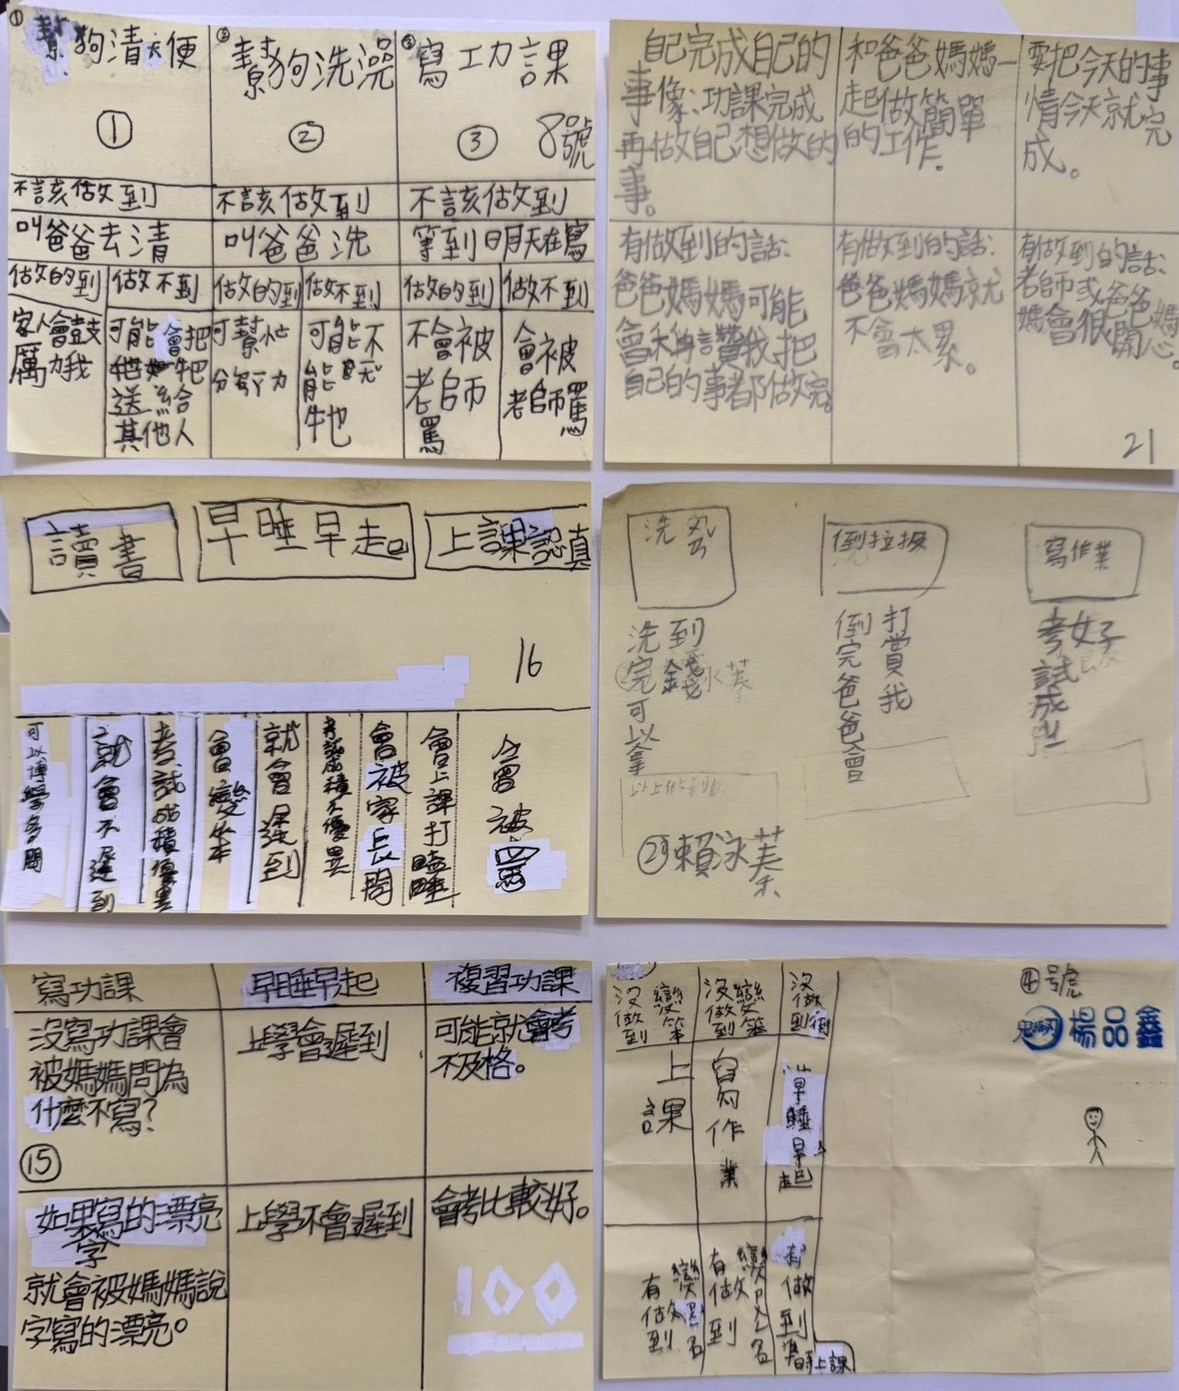 ① 幫狗清大便
①
② 幫狗洗澡
②
③ 寫功課
③ 8號
不該做到
不該做到
不該做到
叫爸爸去清
叫爸爸洗
等到明天在寫
做的到
做不到
做的到
做不到
做的到
做不到
家人會鼓
厲我
可能會把
牠
送給
其他人
可幫忙
可能不
能
牠
不會被
老師
罵
會被
老師罵
自己完成自己的
事像:功課完成
再做自己想做的
事。
和爸爸媽媽一
起做簡單
的工作。
要把今天的事
情今天就完
成。
有做到的話:
爸爸媽媽可能
會稱讚我把
自己的事都做完。
有做到的話:
爸爸媽媽就
不會太累。
有做到的話:
老師或爸爸媽
媽會很開心。
21
讀書
早睡早起
上課認真
16
可以博學多聞
就會不遲到
考試成積優異
會變笨
就會遲到
考試成積不優異
會被家長問
會上課打瞌睡
會被罵
洗
倒垃圾
寫作業
洗完可以拿
到錢
倒完爸爸會
打賞我
考試成
好
29 賴泳蓁
寫功課
早睡早起
複習功課
沒寫功課會
被媽媽問為
什麼不寫?
上學會遲到
可能就會考
不及格。
⑮
如果寫的漂亮
字
就會被媽媽說
字寫的漂亮。
上學不會遲到
會考比較好。
100
④號
楊品鑫
沒做到
變笨
沒做到
變笨
沒做到
上課
寫作業
早睡早起
有做到
變
有做到
變
有做到
上課